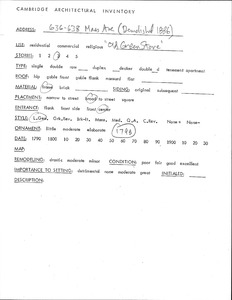 CAMBRIDGE ARCHITECTURAL INVENTORY
ADDRESS: 636-638 Mass Ave (Demolished 1886)
USE: residential commercial religious "Old Green Store"
STORIES: 1 2 3 4 5
TYPE: single double row duplex decker double d tenement apartment
ROOF: hip gable front gable flank mansard flat
MATERIAL: wood brick SIDING: original subsequent
PLACEMENT: narrow to street broad to street square
ENTRANCE: flank front side front center
STYLE: L.Geo. Grk.Rev. Brk-D. Mans. Med. Q.A. C.Rev. None+ None-
ORNAMENT: little moderate elaborate 1798
DATE: 1790 1800 10 20 30 40 50 60 70 80 90 1900 10 20 30
MAP:
REMODELING: drastic moderate minor CONDITION: poor fair good excellent
IMPORTANCE TO SETTING: detrimental none moderate great INITIALED:
DESCRIPTION: